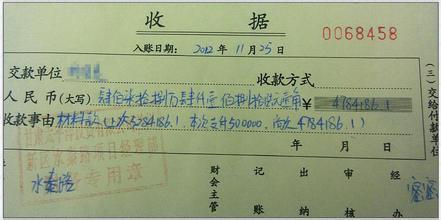 收 据
0068458
入账日期: 2012 年 11 月 25 日
交款单位 收款方式
人民币(大写) 肆佰柒拾捌万肆仟壹佰捌拾陆元壹角 ¥ 4784186.1
收款事由 材料款(上欠5284186.1,本次支付500000,尚欠4784186.1)
年 月 日
新区水秦路项目经理部
专用章
水秦路
财会主管
记账
出纳
审核
经办
(三)交给付款单位